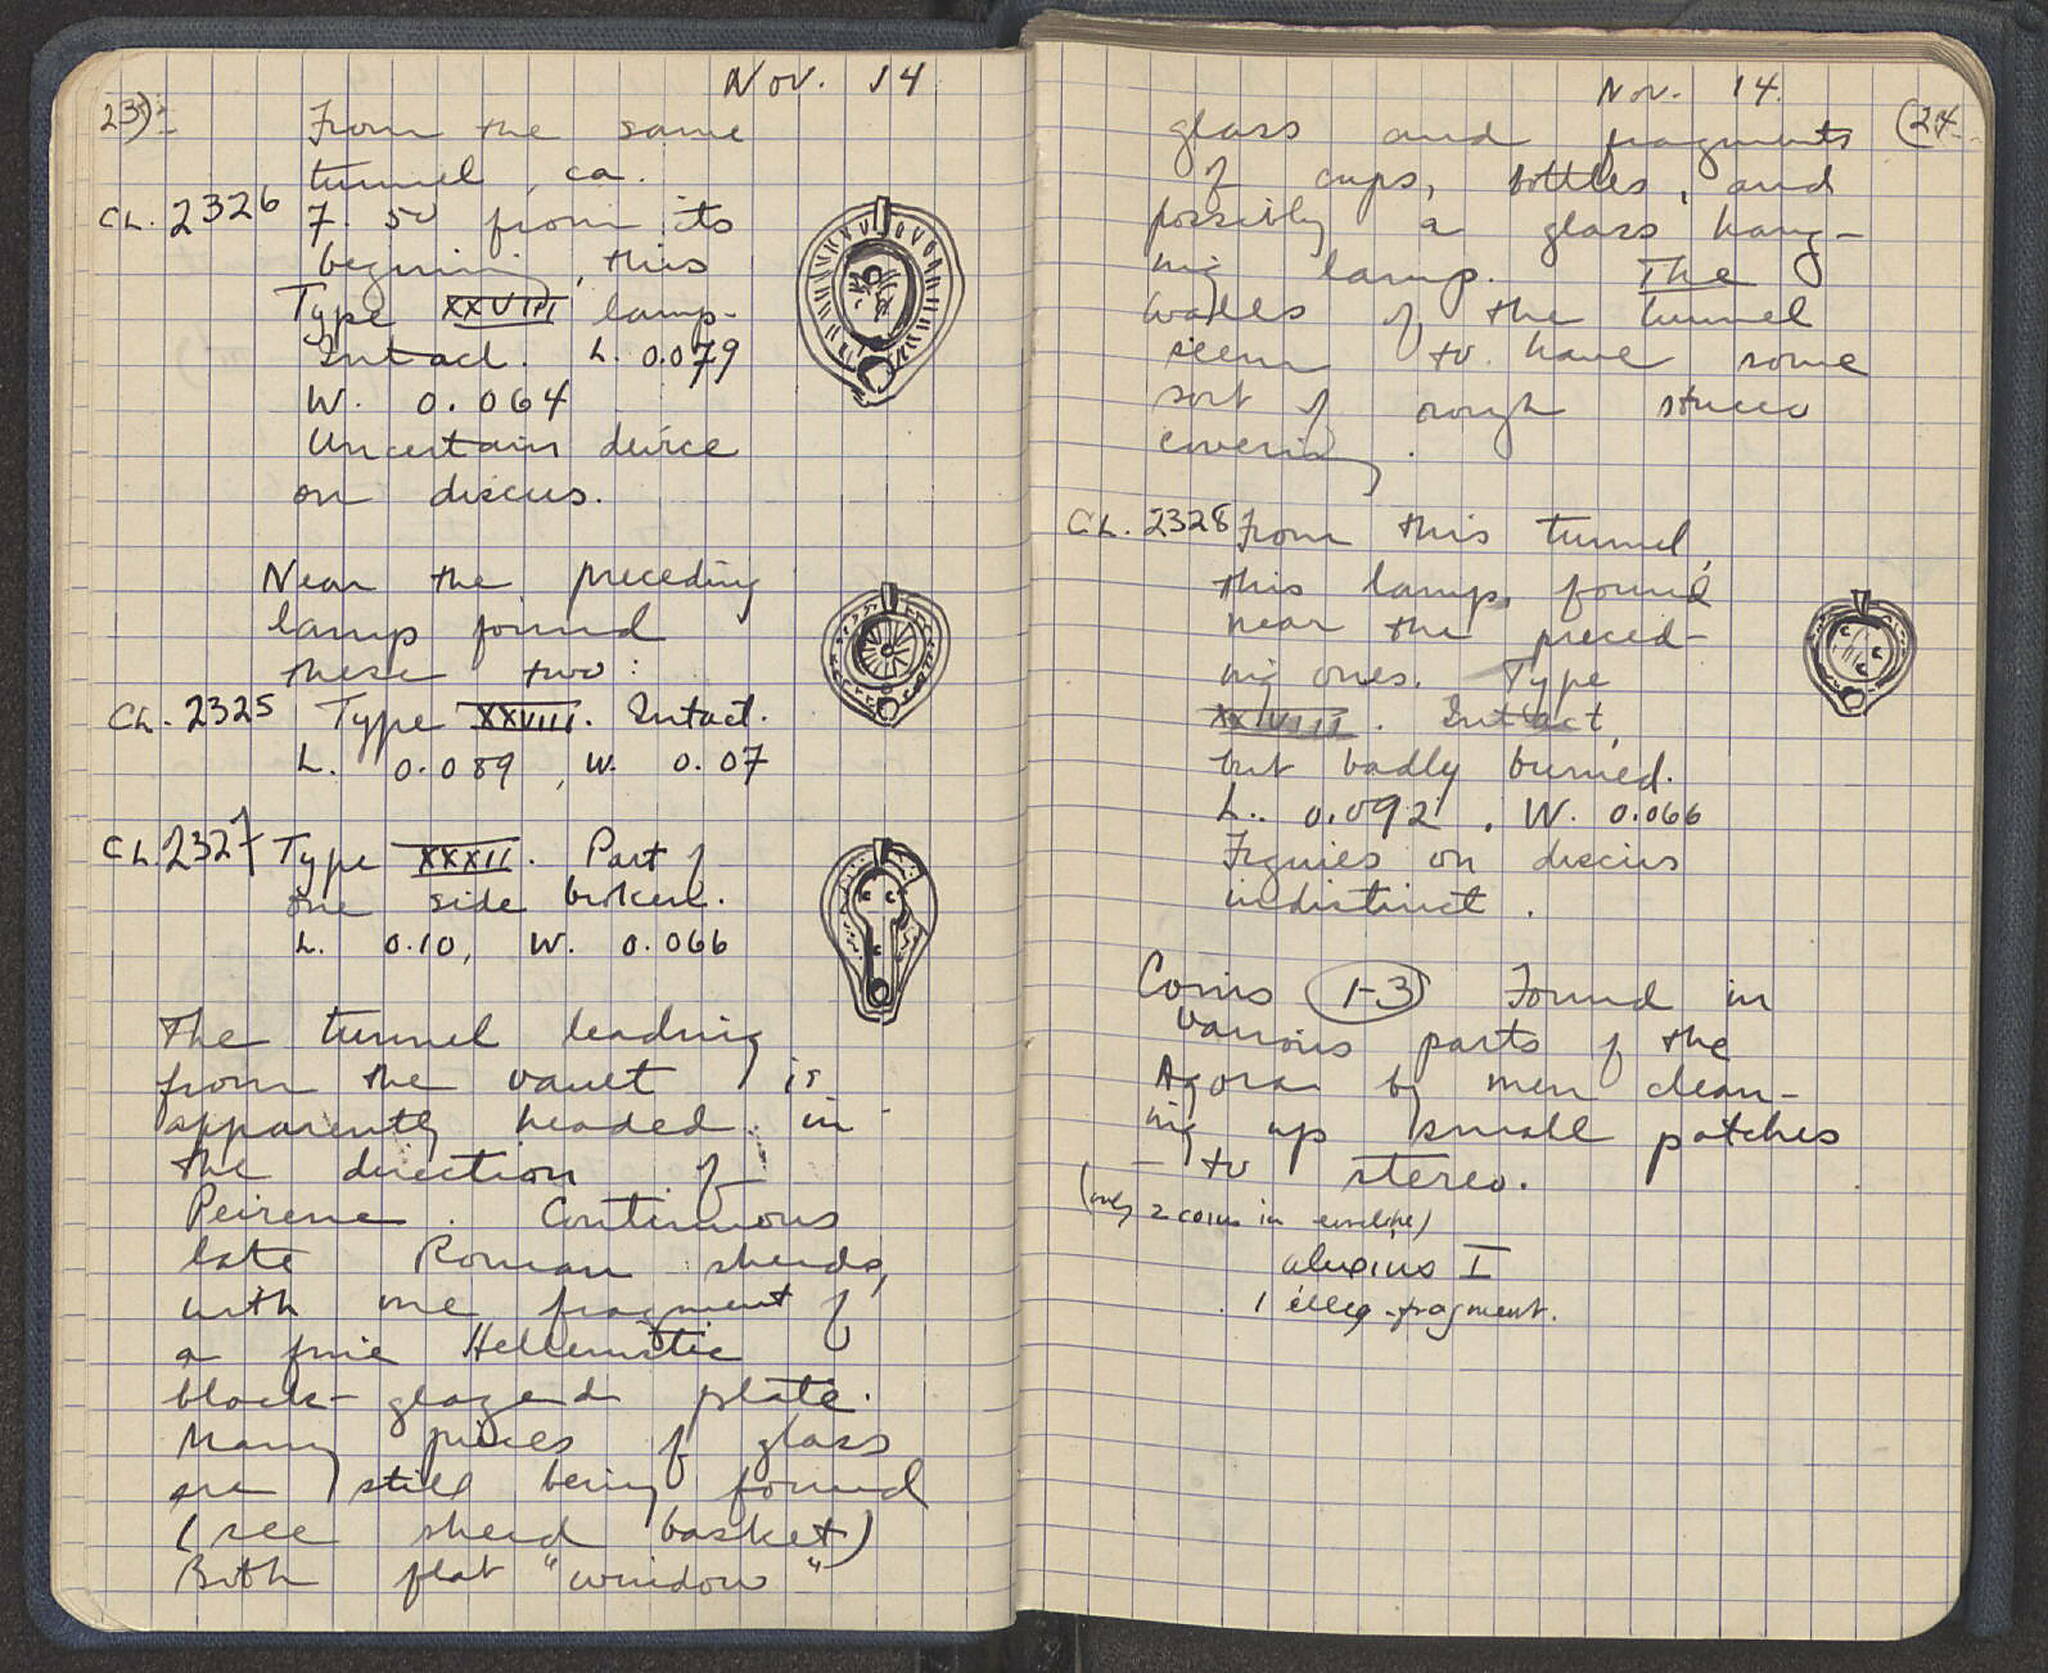 Nov. 14
23)
From the same
tunnel, ca.
CL. 2326 7.50 from its
begining, this
Type XXVIII lamp.
Intact. L. 0.079
W. 0.064
Uncertain device
on discus.
Near the preceding
lamp found
these two:
CL. 2325 Type XXVIII. Intact.
L. 0.089, W. 0.07
CL. 2327 Type XXXII. Part of
one side broken.
L. 0.10, W. 0.066
The tunnel leading
from the vault is
apparently headed in
the direction of
Peirene. Continuous
late Roman sherds,
with one fragment of
a fine Hellenistic
black-glazed plate.
Many pieces of glass
are still being found
(see sherd basket)
Both flat "window"
Nov. 14.
(24
glass and fragments
of cups, bottles, and
possibly a glass hang-
ing lamp. The
walls of the tunnel
seem to have some
sort of rough stucco
covering.
CL. 2328 From this tunnel,
this lamp, found
near the preced-
ing ones. Type
XXVIII. Intact,
but badly burned.
L. 0.092. W. 0.066
Figures on discus
indistinct.
Coins 1-3 Found in
various parts of the
Agora by men clean-
ing up small patches
- to stereo.
(only 2 coins in envelope)
alexius I
1 illeg. fragment.